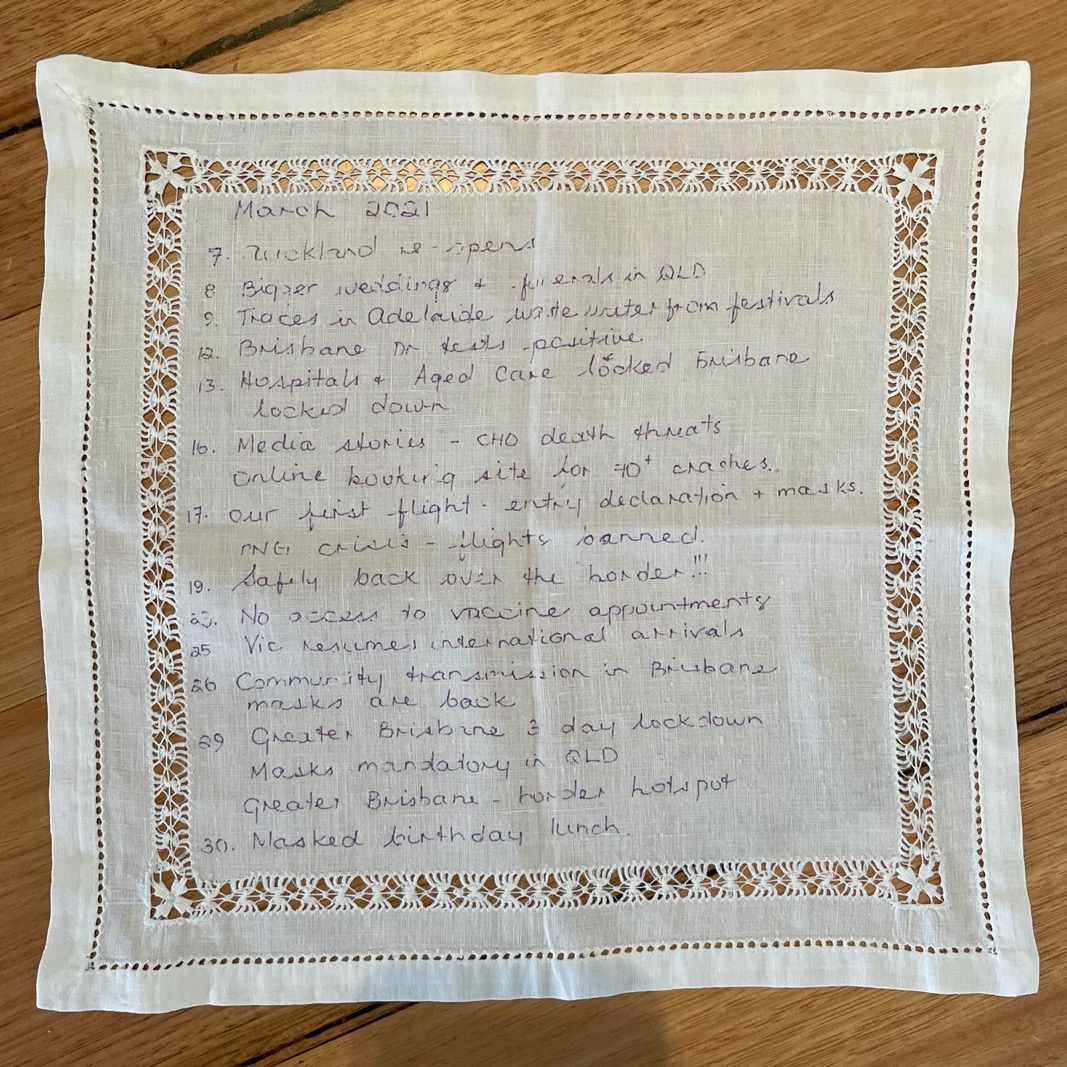 March 2021
7. Auckland re-opens
8 Bigger weddings + funerals in QLD
9. Traces in Adelaide waste water from festivals
12. Brisbane Dr tests positive.
13. Hospitals + Aged Care locked Brisbane
locked down
16. Media stories - CHO death threats
Online booking site for 70+ crashes.
17. Our first flight - entry declaration + masks.
PNG crisis - flights banned.
19. Safely back over the border!!!
No access to vaccine appointments
25 Vic resumes international arrivals
26 Community transmission in Brisbane
masks are back
29 Greater Brisbane 3 day lockdown
Masks mandatory in QLD
Greater Brisbane - border hotspot
30. Masked birthday lunch.